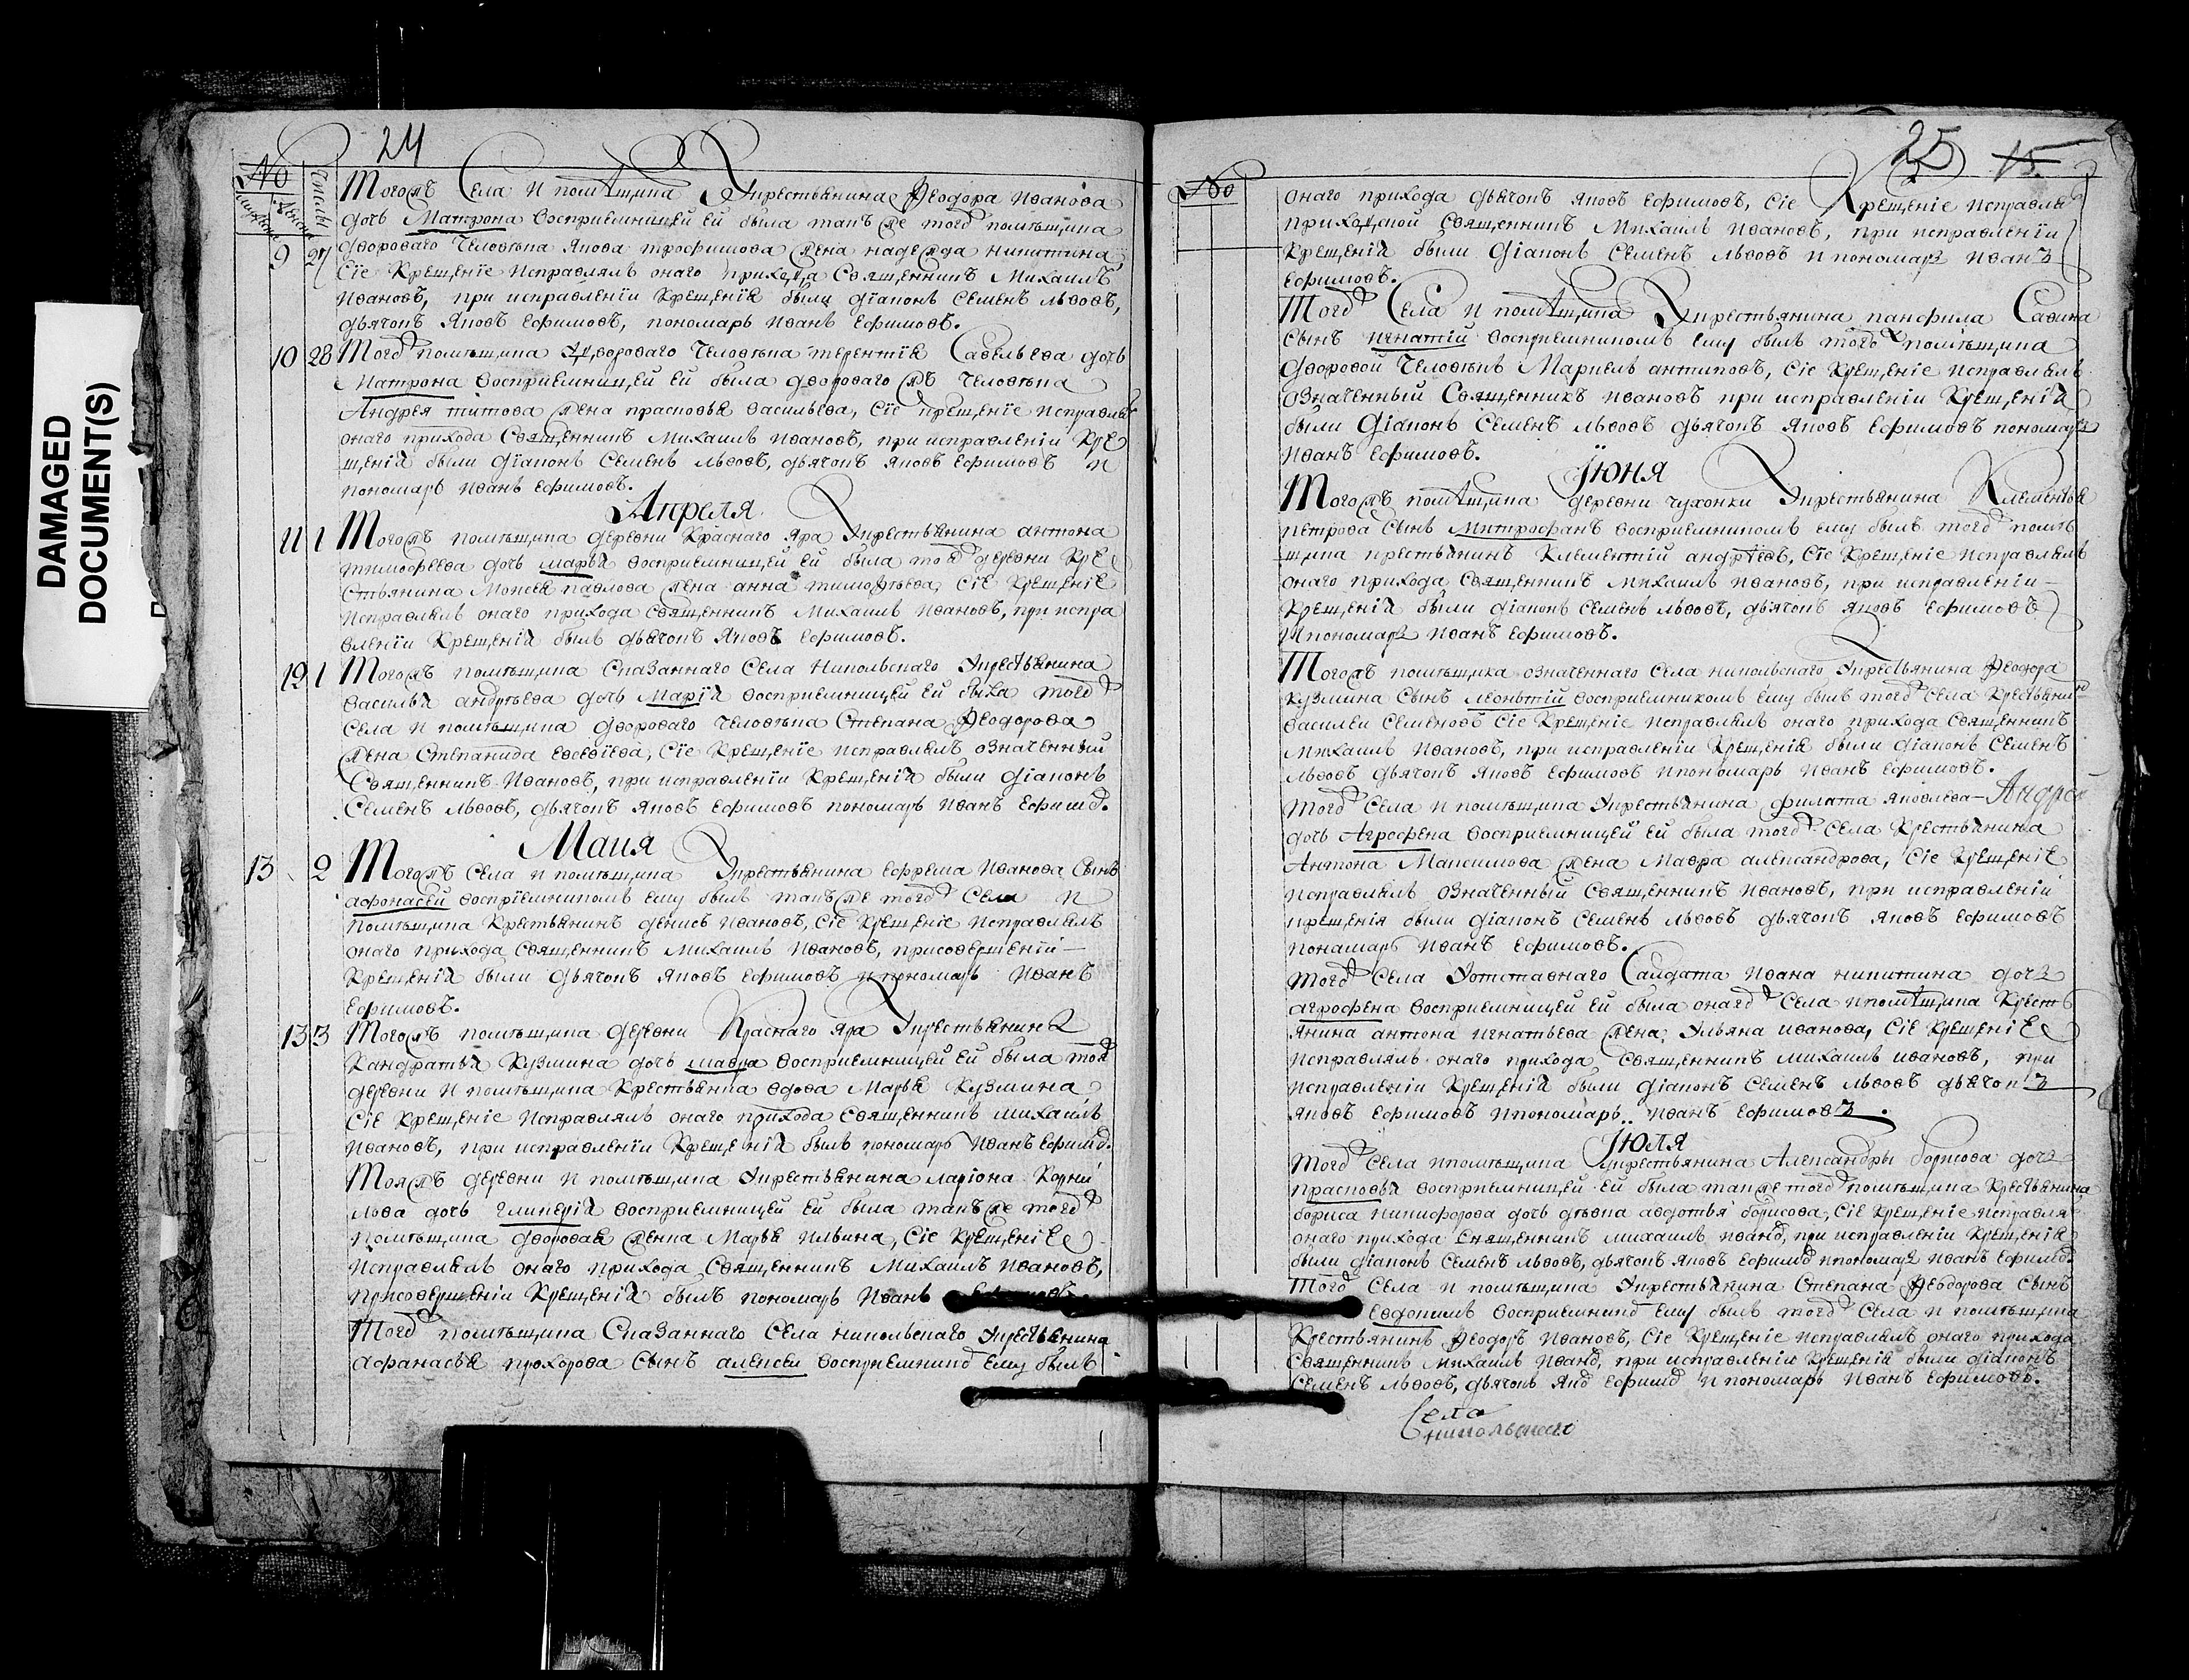 DAMAGED
DOCUMENT(S)
24
№
Числы
Тогожъ Села и помѣщика Укрестьянина Ѳеодора Иванова
дочь Матрона восприемницей ей была такъ же того помѣщика
9 27 двороваго человѣка Якова трофимова жена надежда никитина
Сіе Крещеніе исправлялъ онаго прихода Священникъ Михаилъ
Ивановъ, при исправленіи Крещенія были діаконъ Семенъ львовъ,
дьячокъ Яковъ Ефимовъ, пономарь Иванъ Ефимовъ.
10 28 Того помѣщика удвороваго человѣка терентія Савельева дочь
Матрона восприемницей ей была двороваго жъ человѣка
Андрея титова жена прасковья васильева, Сіе крещеніе исправлялъ
онаго прихода Священникъ Михаилъ Ивановъ, при исправленіи Кре
щенія были діаконъ Семенъ львовъ, дьячокъ Яковъ Ефимовъ и
пономарь Иванъ Ефимовъ.
Апреля
11 1 Тогожъ помѣщика деревни Краснаго Яра Укрестьянина антона
тимофѣева дочь марья восприемницей ей была той деревни Кре
стьянина Моисея павлова жена анна тимофѣева, Сіе Крещеніе
исправлялъ онаго прихода Священникъ Михаилъ Ивановъ, при испра
вленіи Крещенія былъ дьячокъ Яковъ Ефимовъ.
12 1 Тогожъ помѣщика Сказаннаго Села Никольскаго Укрестьянина
василья андрѣева дочь Марія восприемницей ей была того
Села и помѣщика двороваго человѣка Степана Ѳеодорова
жена Степанида Евсевіева, Сіе Крещеніе исправлялъ означенный
Священникъ Ивановъ, при исправленіи Крещенія были діаконъ
Семенъ львовъ, дьячокъ Яковъ Ефимовъ пономарь Иванъ Ефимо.
Маия
13 2 Тогожъ Села и помѣщика Укрестьянина Ефрема Иванова Сынъ
афонасей восприемникомъ ему былъ такъ же того Села и
помѣщика Крестьянинъ денисъ Ивановъ, Сіе Крещеніе исправлялъ
онаго прихода Священникъ Михаилъ Ивановъ, присовершеніи
Крещенія были дьячокъ Яковъ Ефимовъ и пономарь Иванъ
Ефимовъ.
13 3 Тогожъ помѣщика деревни Краснаго Яра Укрестьянина
Кандратья Кузмина дочь мавра восприемницей ей была той
деревни и помѣщика Крестьянка вдова Марья Кузмина
Сіе Крещеніе исправлялъ онаго прихода Священникъ Михаилъ
Ивановъ, при исправленіи Крещенія былъ пономарь Иванъ Ефимо.
Тояжъ деревни и помѣщика Укрестьянина ларіона Корни
льва дочь гликерія восприемницей ей была такъ же того
помѣщика дворовая женка Марья Ильина, Сіе Крещеніе
исправлялъ онаго прихода Священникъ Михаилъ Ивановъ,
присовершеніи Крещенія былъ пономарь Иванъ Ефимовъ.
Того помѣщика Сказаннаго Села никольскаго Укрестьянина
Афанасья прохорова Сынъ алексей восприемнико ему былъ
25 15
№
онаго прихода дьячокъ Яковъ Ефимовъ, Сіе Крещеніе исправлялъ
приходской Священникъ Михаилъ Ивановъ, при исправленіи
Крещенія были діаконъ Семенъ львовъ и пономарь Иванъ
Ефимовъ.
Того Села и помѣщика Укрестьянина панфила Савина
Сынъ игнатій восприемникомъ ему былъ того помѣщика
дворовой человѣкъ Маркелъ антиповъ, Сіе Крещеніе исправлялъ
означенный Священникъ Ивановъ при исправленіи Крещенія
были діаконъ Семенъ львовъ дьячокъ Яковъ Ефимовъ пономарь
Иванъ Ефимовъ.
Июня
Тогожъ помѣщика деревни чухонки Укрестьянина Клементья
петрова Сынъ Митрофанъ восприемникомъ ему былъ того помѣ
щика крестьянинъ Клементий андрѣевъ, Сіе Крещеніе исправлялъ
онаго прихода Священникъ Михаилъ Ивановъ, при исправленіи
Крещенія были діаконъ Семенъ львовъ, дьячокъ Яковъ Ефимовъ
и пономарь Иванъ Ефимовъ.
Тогожъ помѣщика означеннаго Села никольскаго Укрестьянина Ѳеодора
Кузмина Сынъ леонтій восприемникомъ ему былъ того Села Крестьянинъ
василеи Семеновъ Сіе Крещеніе исправлялъ онаго прихода Священникъ
Михаилъ Ивановъ, при исправленіи Крещенія были діаконъ Семенъ
львовъ дьячокъ Яковъ Ефимовъ и пономарь Иванъ Ефимовъ.
Того Села и помѣщика Укрестьянина филата Яковлева - Андре
дочь Агрофена восприемницей ей была того Села Крестьянина
Антона Максимова жена Мавра александрова, Сіе Крещеніе
исправлялъ означенный Священникъ Ивановъ, при исправленіи
крещенія были діаконъ Семенъ львовъ дьячокъ Яковъ Ефимовъ
пономарь Иванъ Ефимовъ.
Того Села Уотставнаго Салдата Ивана никитина дочь
агрофена восприемницей ей была онаго Села и помѣщика Кресть
янина антона игнатьева жена Ульяна иванова, Сіе Крещеніе
исправлялъ онаго прихода Священникъ михаилъ ивановъ, при
исправленіи Крещенія были діаконъ Семенъ львовъ дьячокъ
Яковъ Ефимовъ и пономарь Иванъ Ефимовъ.
Июля
Того Села и помѣщика Укрестьянина Александры борисова дочь
прасковья восприемницей ей была такъ же того помѣщика Крестьянина
бориса никифорова дочь дѣвка авдотья борисова, Сіе Крещеніе исправлял
онаго прихода Священникъ михаилъ ивано, при исправленіи Крещенія
были діаконъ Семенъ львовъ, дьячокъ Яковъ Ефимо и пономарь Иванъ Ефимо.
Того Села и помѣщика Укрестьянина Степана Ѳеодорова Сынъ
Евдокимъ восприемнико ему былъ того Села и помѣщика
Крестьянинъ Ѳеодоръ Ивановъ, Сіе Крещеніе исправлялъ онаго прихода
Священникъ Михаилъ Ивано, при исправленіи Крещенія были діаконъ
Семенъ львовъ, дьячокъ Яко Ефимо и пономарь Иванъ Ефимовъ.
Села
никольскаго